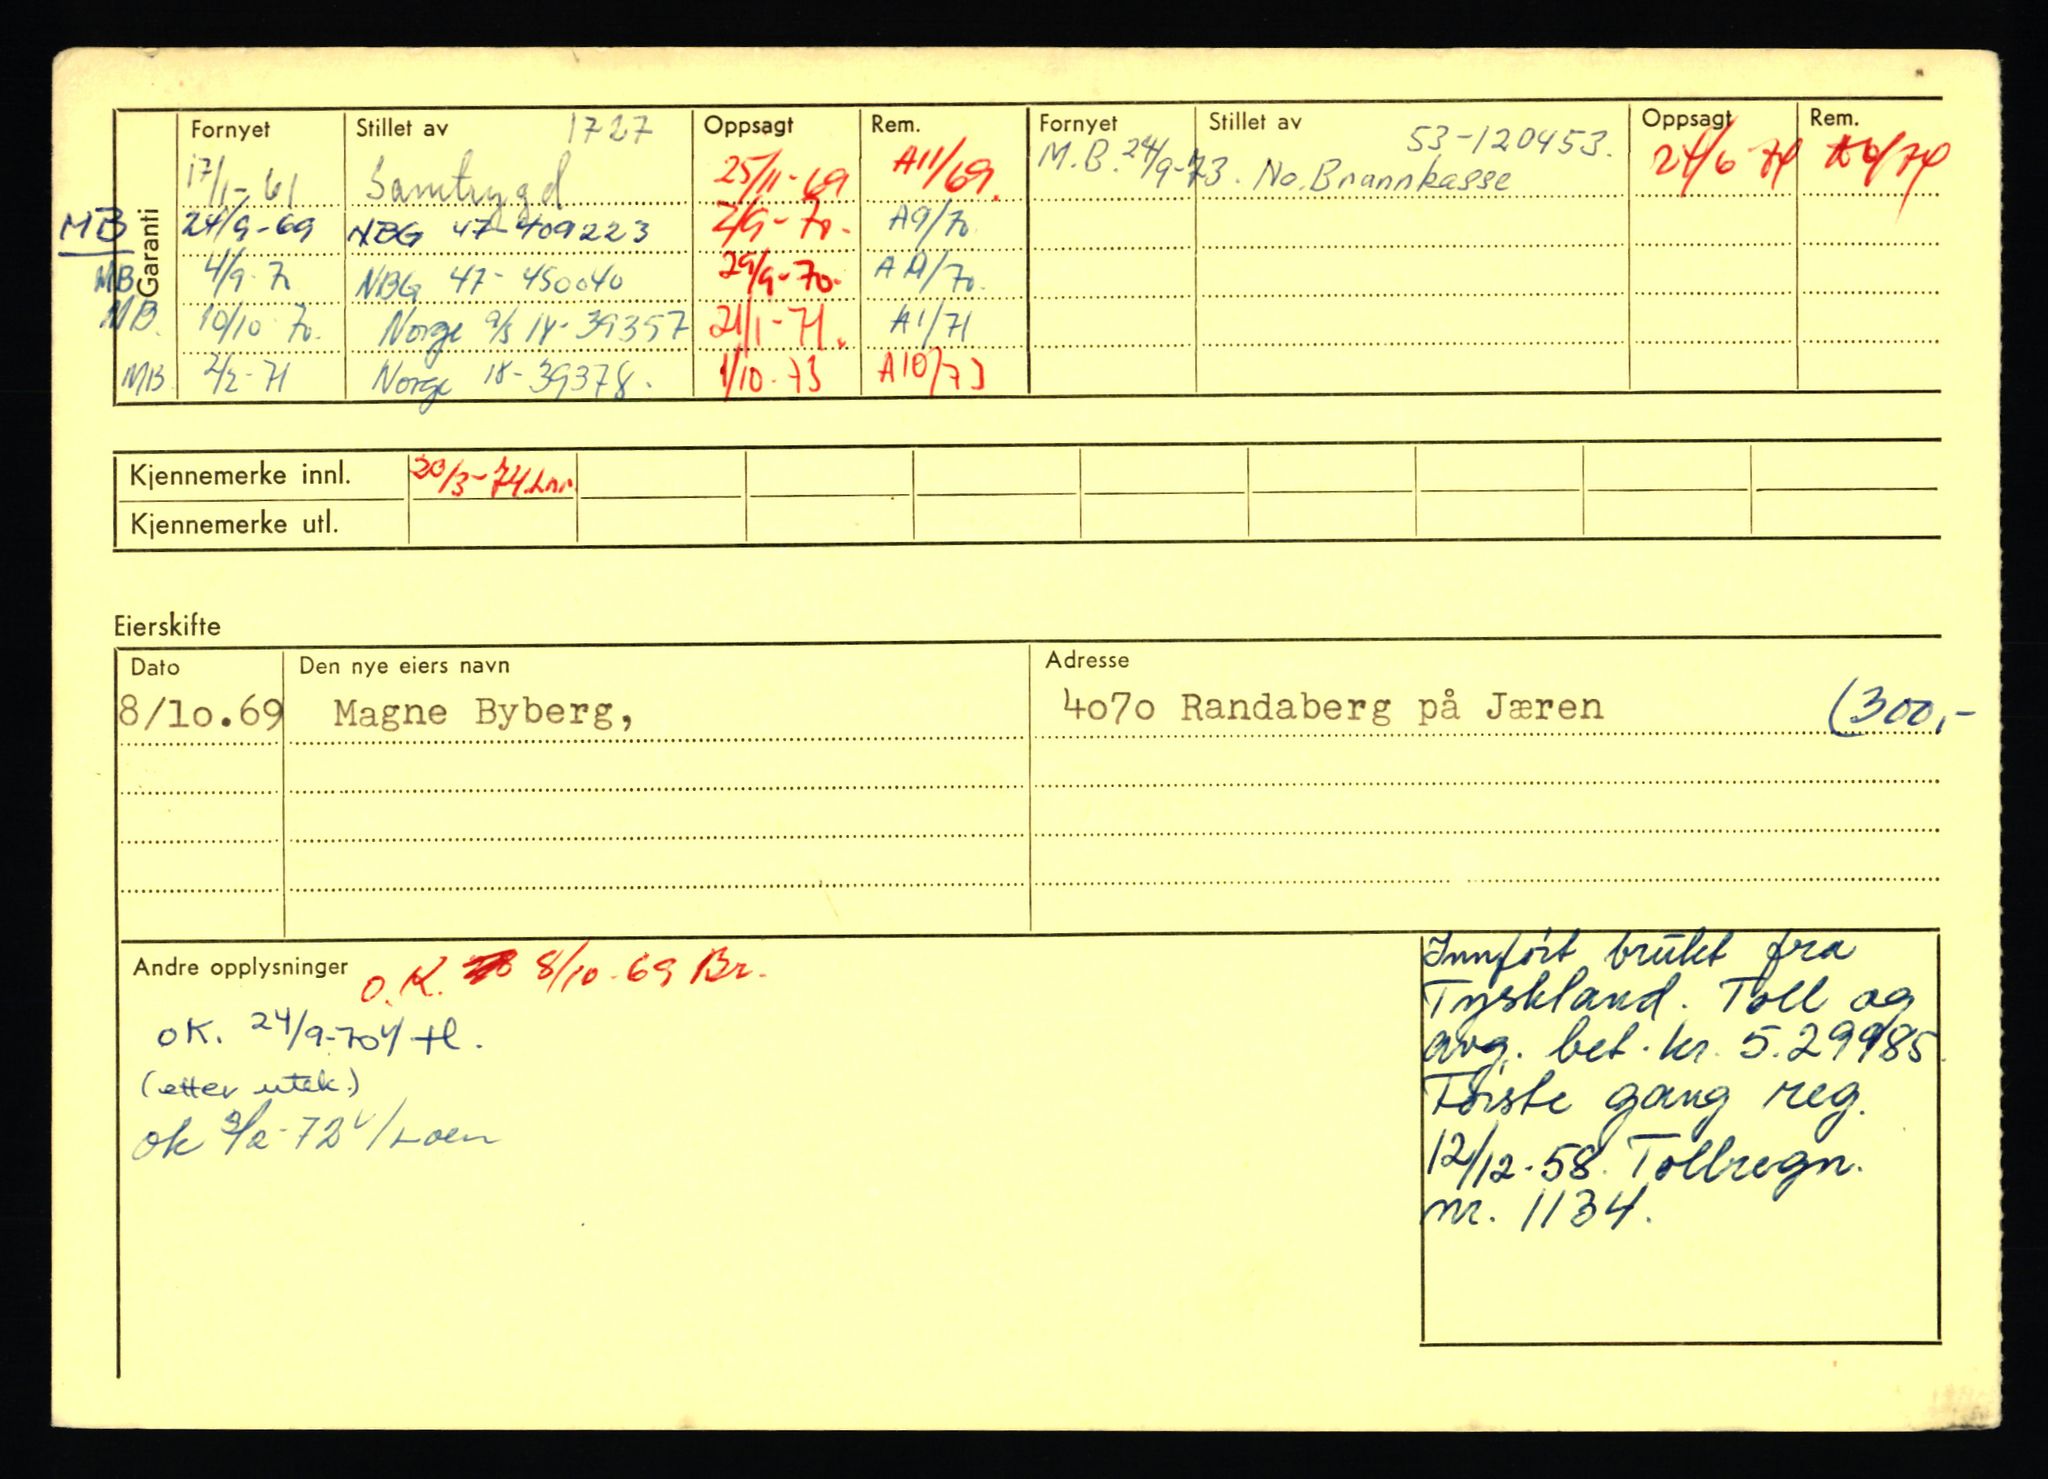 Garanti
Fornyet Stillet av 1727 Oppsagt Rem. Fornyet Stillet av 53-120453. Oppsagt Rem.
17/1-61 Samtrygd 25/11-69 A11/69. M.B. 24/9-73. No. Brannkasse 24/6 74 A6/74
MB 24/9-69 NBG 47-409223 2/9-70. A9/70.
MB 4/9-70 NBG 47-450040 29/9-70. A 11/70.
MB. 10/10 70. Norge a/s 18-39357 21/1-71. A1/71
MB. 2/2-71 Norge 18-39378. 1/10-73 A10/73
Kjennemerke innl. 20/3-74
Kjennemerke utl.
Eierskifte
Dato Den nye eiers navn Adresse
8/10.69 Magne Byberg, 4070 Randaberg på Jæren (300,-
Andre opplysninger O.K. 8/10-69 Br.
OK. 24/9-70
(etter utek.)
ok 3/2-72 /Loen
Innført brukt fra
Tyskland. Toll og
avg. bet. kr. 5.299/85.
Første gang reg.
12/12-58. Tollregn.
nr. 1134.